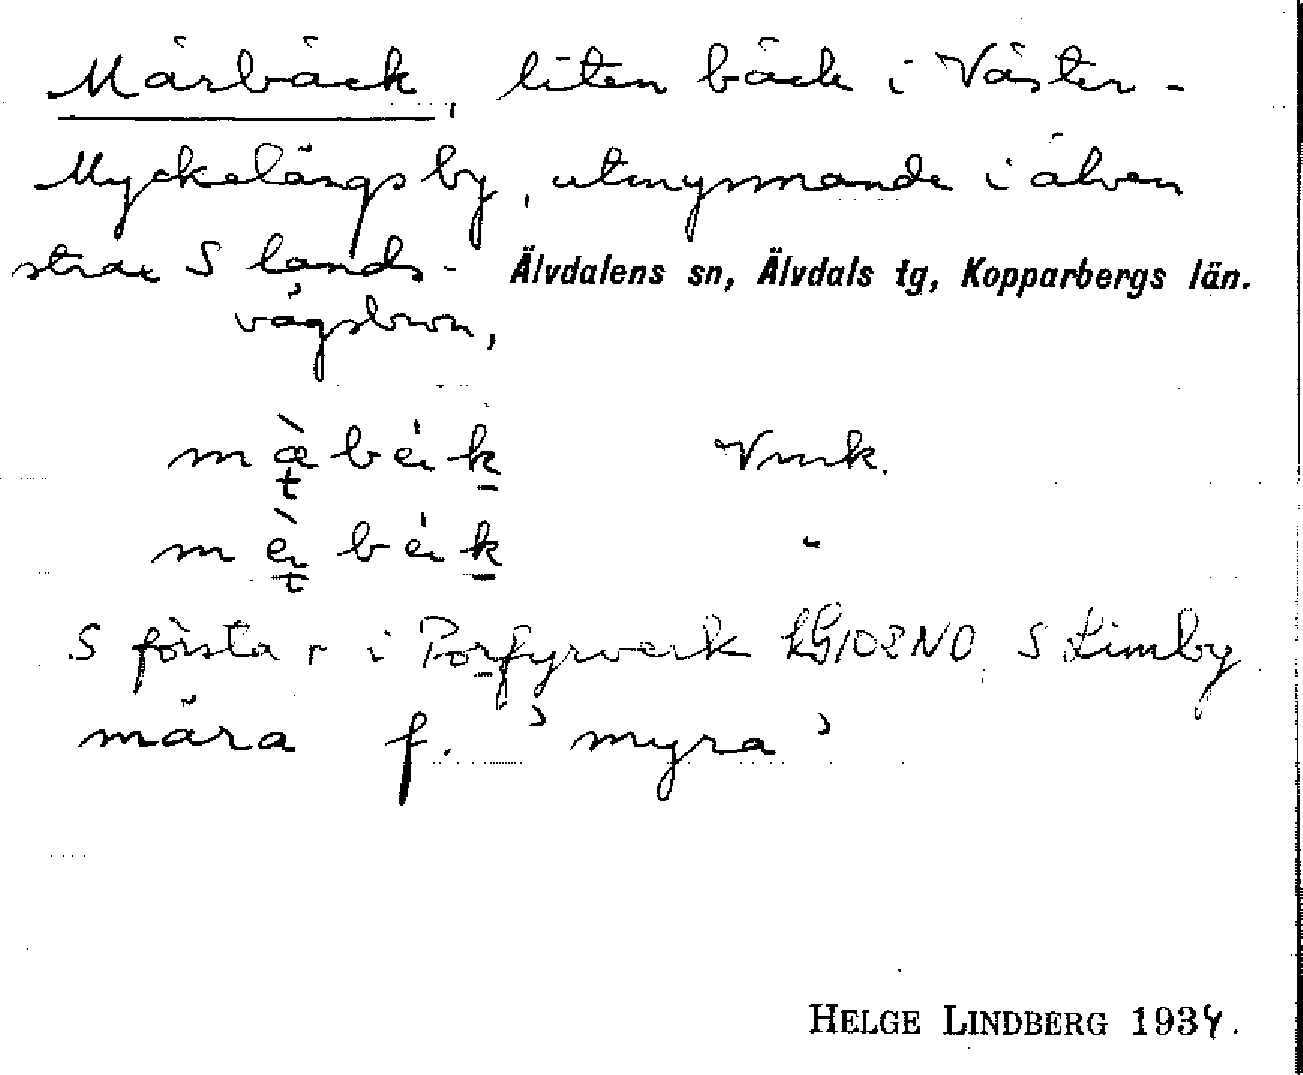 Märbäck, liten bäck i Väster-
Myckelängs by, utmynnande i älven
strax S lands- Älvdalens sn, Älvdals tg, Kopparbergs län.
vägsbron,
Vmk.
"
S första r i Porfyrverk LG102NO S Limby
mära f. 'myra'
HELGE LINDBERG 1934.